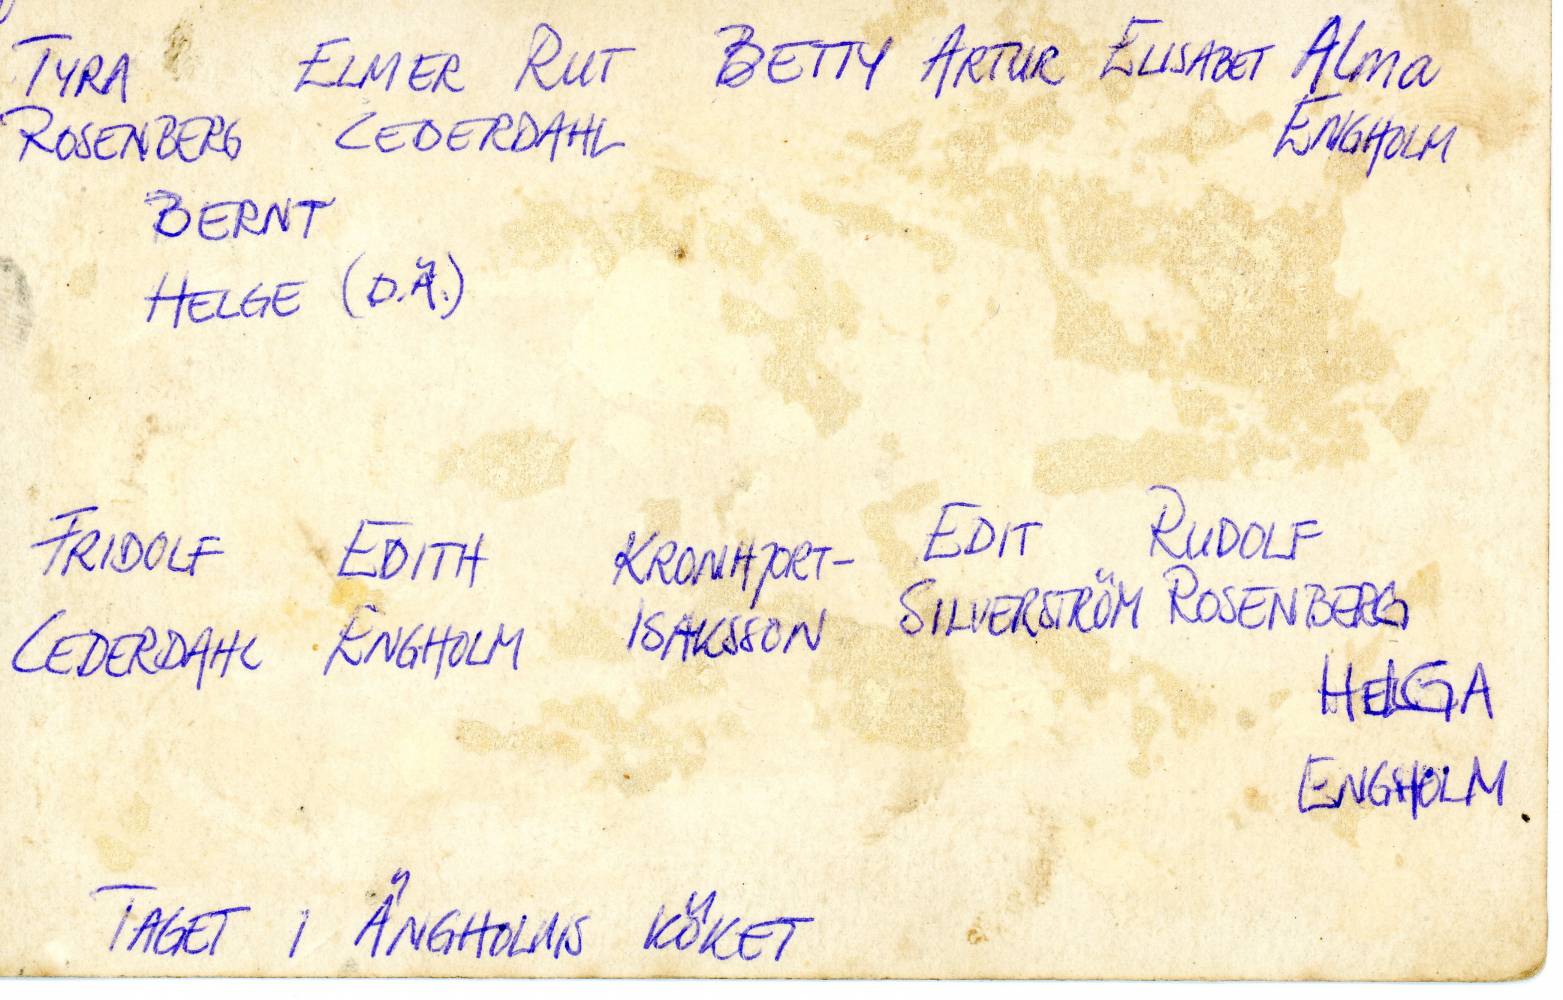 TYRA ELMER RUT BETTY ARTUR ELISABET ALma
ROSENBERG CEDERDAHL ENGHOLM
BERNT
HELGE (D.Ä.)
FRIDOLF EDITH KRONHJORT- EDIT RUDOLF
CEDERDAHL ENGHOLM ISAKSSON SILVERSTRÖM ROSENBERG
HELGA
ENGHOLM
TAGET I ÄNGHOLMS KÖKET